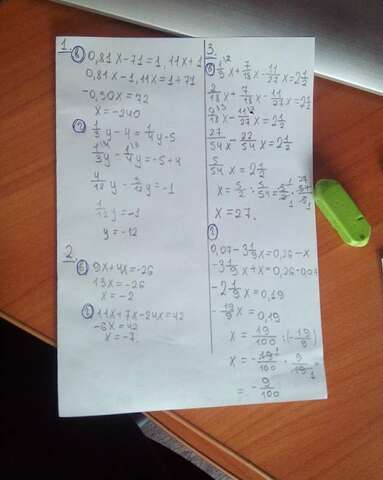 1.
в) 0,81x-71=1,11x+1
0,81x-1,11x=1+71
-0,30x=72
x=-240
г) 1/3y-4=1/4y-5
1/3y-1/4y=-5+4
4/12y-3/12y=-1
1/12y=-1
y=-12
2.
9x+4x=-26
13x=-26
x=-2
г) 11x+7x-24x=42
-6x=42
x=-7.
3.
в) 1/9x+7/18x-11/27x=2 1/2
2/18x+7/18x-11/27x=2 1/2
9/18x-11/27x=2 1/2
27/54x-22/54x=2 1/2
5/54x=2 1/2
x=5/2:5/54=5/2·54/5
x=27.
г)
0,07-3 1/9x=0,26-x
-3 1/9x+x=0,26-0,07
-2 1/9x=0,19
-19/9x=0,19
x=19/100:(-19/9)
x=-19/100·9/19
=-9/100